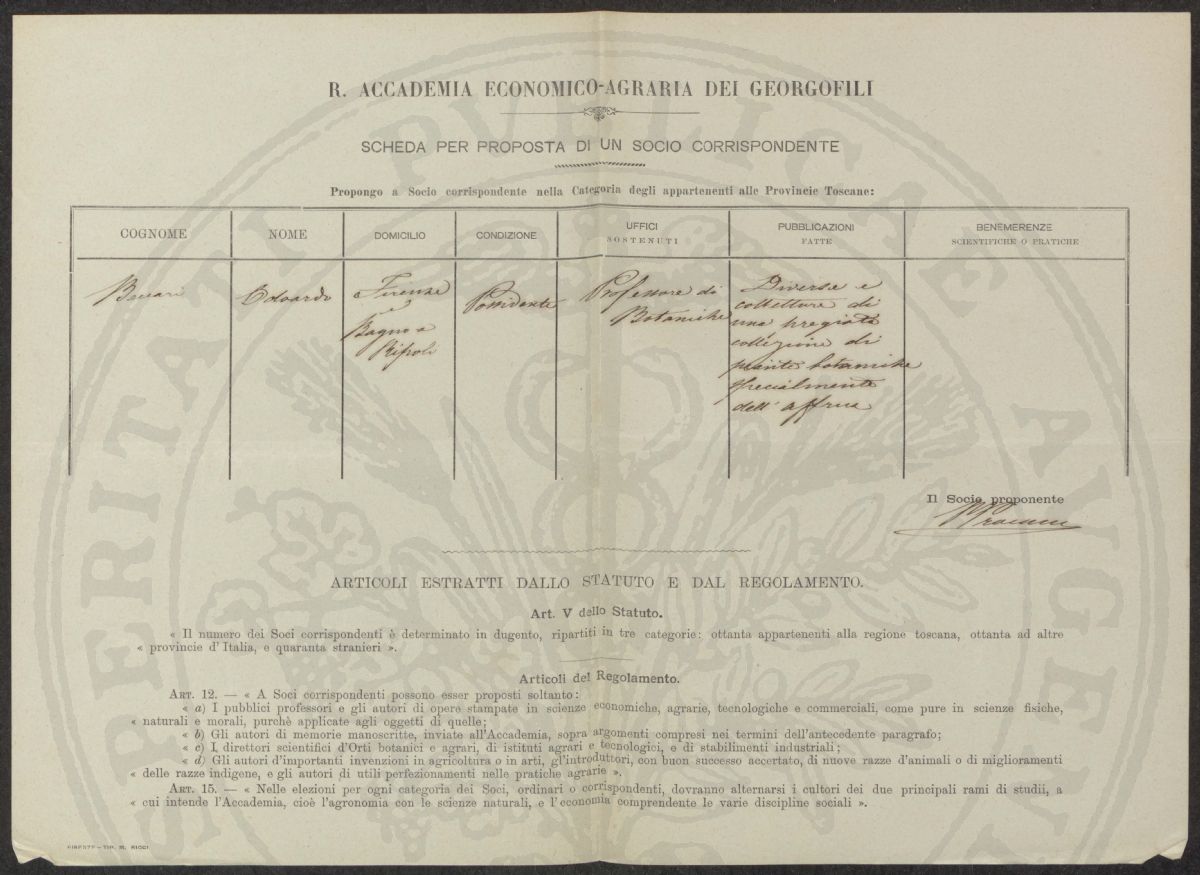 R. ACCADEMIA ECONOMICO-AGRARIA DEI GEORGOFILI
SCHEDA PER PROPOSTA DI UN SOCIO CORRISPONDENTE
Propongo a Socio corrispondente nella Categoria degli appartenenti alle Provincie Toscane:
COGNOME
NOME
DOMICILIO
CONDIZIONE
UFFICI
SOSTENUTI
PUBBLICAZIONI
FATTE
BENEMERENZE
SCIENTIFICHE O PRATICHE
Beccari
Odoardo
Firenze
e
Bagno a
Ripoli
Possidente
Professore di
Botaniche
Diverse e
collettore di
una pregiata
collezione di
piante botanike
specialmente
dell' affrica
Il Socio proponente
ARTICOLI ESTRATTI DALLO STATUTO E DAL REGOLAMENTO.
Art. V dello Statuto.
« Il numero dei Soci corrispondenti è determinato in dugento, ripartiti in tre categorie: ottanta appartenenti alla regione toscana, ottanta ad altre
« provincie d' Italia, e quaranta stranieri ».
Articoli del Regolamento.
ART. 12. — « A Soci corrispondenti possono esser proposti soltanto:
« a) I pubblici professori e gli autori di opere stampate in scienze economiche, agrarie, tecnologiche e commerciali, come pure in scienze fisiche,
« naturali e morali, purchè applicate agli oggetti di quelle;
« b) Gli autori di memorie manoscritte, inviate all'Accademia, sopra argomenti compresi nei termini dell'antecedente paragrafo;
« c) I direttori scientifici d'Orti botanici e agrari, di istituti agrari e tecnologici, e di stabilimenti industriali;
« d) Gli autori d'importanti invenzioni in agricoltura o in arti, gl'introduttori, con buon successo accertato, di nuove razze d'animali o di miglioramenti
« delle razze indigene, e gli autori di utili perfezionamenti nelle pratiche agrarie ».
ART. 15. — « Nelle elezioni per ogni categoria dei Soci, ordinari o corrispondenti, dovranno alternarsi i cultori dei due principali rami di studii, a
« cui intende l'Accademia, cioè l'agronomia con le scienze naturali, e l'economia comprendente le varie discipline sociali ».
FIRENZE - TIP. M. RICCI
PROSPERITATI PUBLICAE AVGENDAE